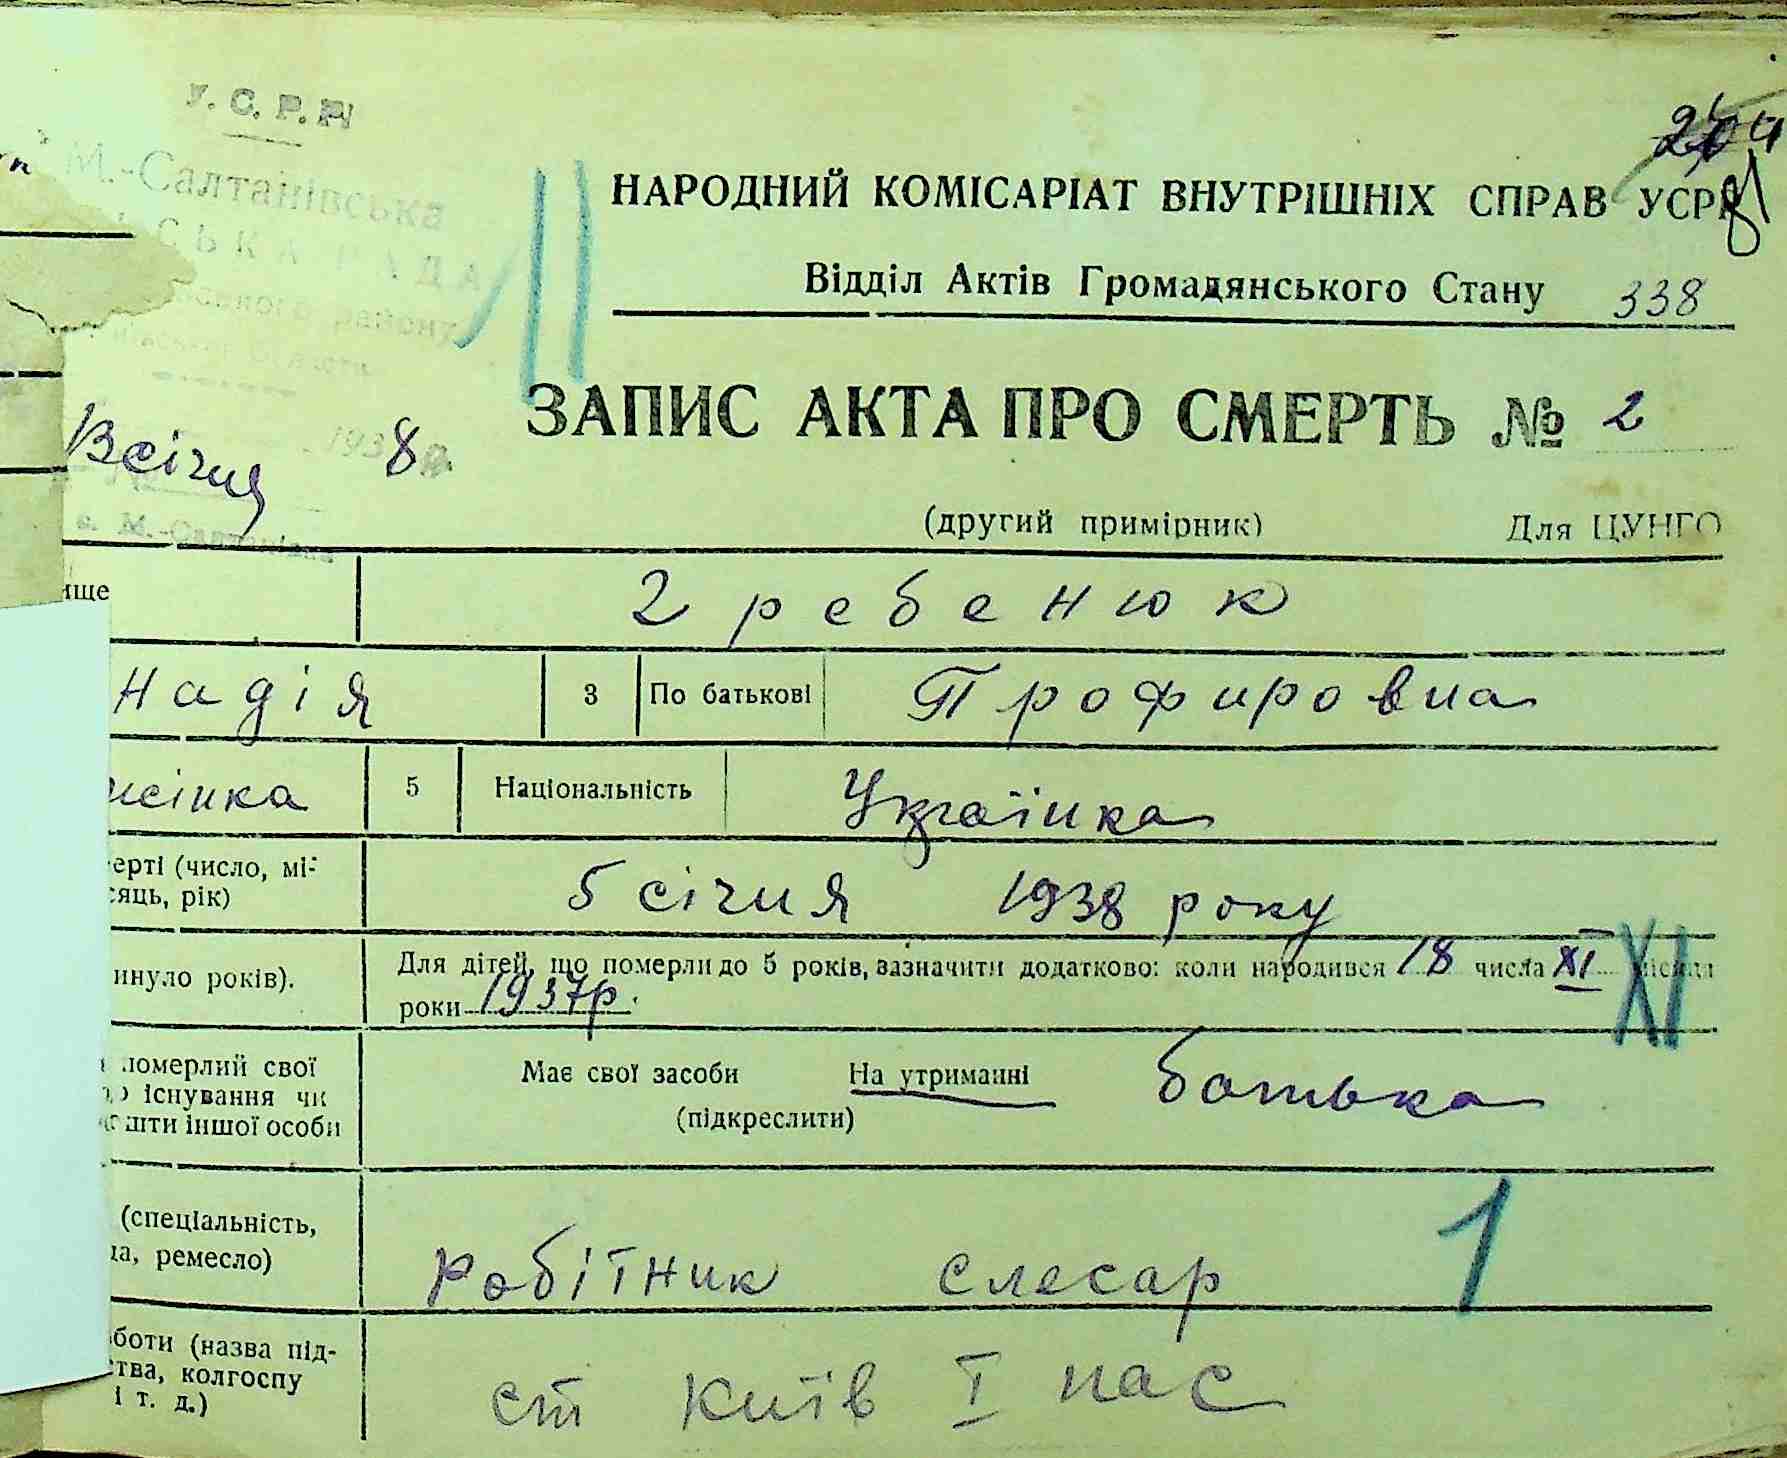 У. С. Р. Р.
М.-Салтанівська
СЬКА РАДА
району
НАРОДНИЙ КОМІСАРІАТ ВНУТРІШНІХ СПРАВ УСРР
Відділ Актів Громадянського Стану 338
ЗАПИС АКТА ПРО СМЕРТЬ № 2
січня 1938 р.
с. М.-Салтанівка
(другий примірник) Для ЦУНГО
ище Гребенюк
Надія 3 По батькові Профировна
жінка 5 Національність Українка
ерті (число, мі-
сяць, рік) 5 січня 1938 року
инуло років). Для дітей, що померли до 5 років, зазначити додатково: коли народився 18 числа XI місяця XI
роки 1937р.
померлий свої Має свої засоби На утриманні батька
існування чи (підкреслити)
шти іншої особи
(спеціальність,
да, ремесло) робітник слесар 1
боти (назва під-
ства, колгоспу
і т. д.) ст Київ I пас